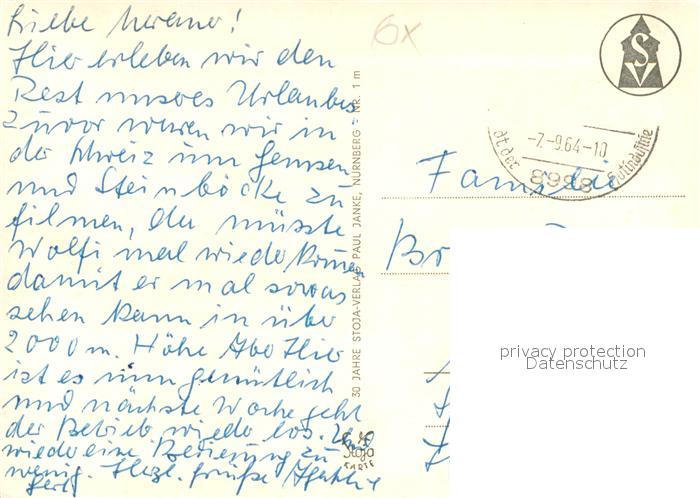 Liebe Meraner!
Hier erleben wir den
Rest unseres Urlaubes
Zuvor waren wir in
der Schweiz um Gemsen
und Steinböcke zu
filmen, da müsste
Wolfi mal wieder kommen
damit er mal sowas
sehen kann in über
2000 m. Höhe Aber Hier
ist es nun gemütlich
und nächste Woche geht
der Betrieb wieder los.
wieder eine Bedienung zu
wenig. Herzl. Grüße
30 JAHRE STOJA-VERLAG PAUL JANKE, NÜRNBERG - NR. 1 m
Stoja
KARTE
6x
SV
-7.-9.64-10
8998
Familie
Br
privacy protection
Datenschutz